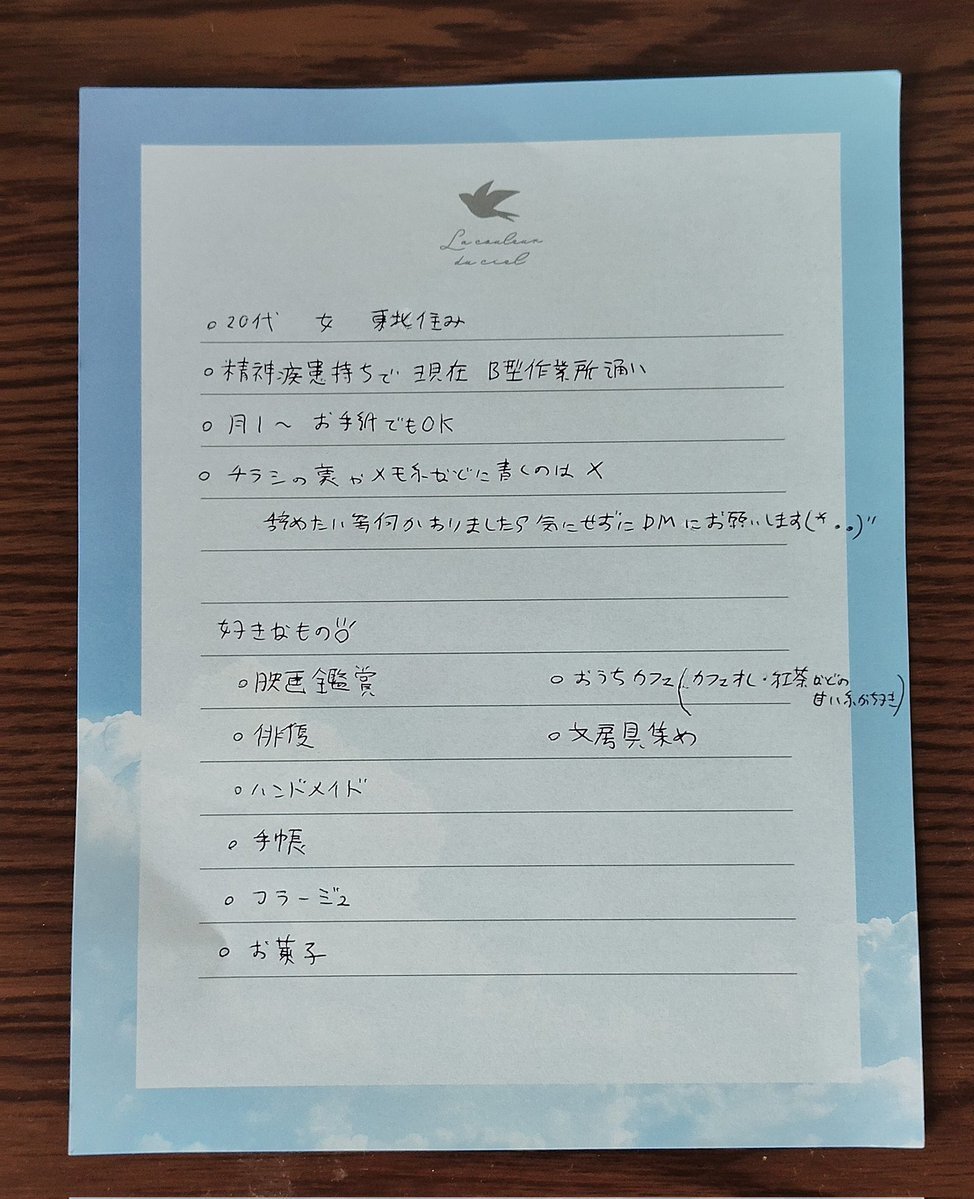 La couleur
du ciel
○20代 女 東北住み
○精神疾患持ちで 現在 B型作業所通い
○ 月1〜 お手紙でもOK
○ チラシの裏やメモ系などに書くのは ×
辞めたい等何かありましたら気にせずにDMにお願いします(*..)"
好きなもの
○映画鑑賞
○おうちカフェ(カフェオレ・紅茶などの
甘い系が好き)
○俳優
○文房具集め
○ハンドメイド
○ 手帳
○ コラージュ
○ お菓子